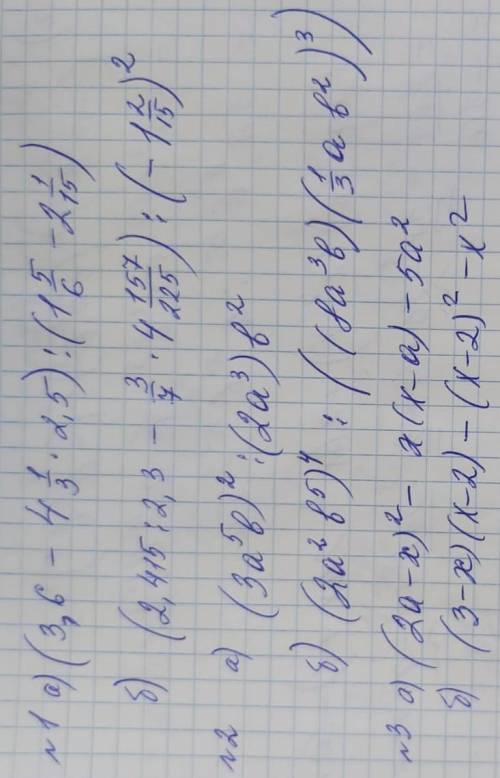 n1 а) (3,6 - 4 1/3 · 2,5) : (1 5/6 - 2 1/15)
б) (2,415 : 2,3 - 3/7 · 4 157/225) : (-1 2/15)²
n2 а) (3a⁵b)² : (2a³)b²
б) (2a²b⁵)⁴ : ((8a³b)(1/3ab²)³)
n3 а) (2a-x)² - x(x-a) - 5a²
б) (3-x)(x-2) - (x-2)² - x²